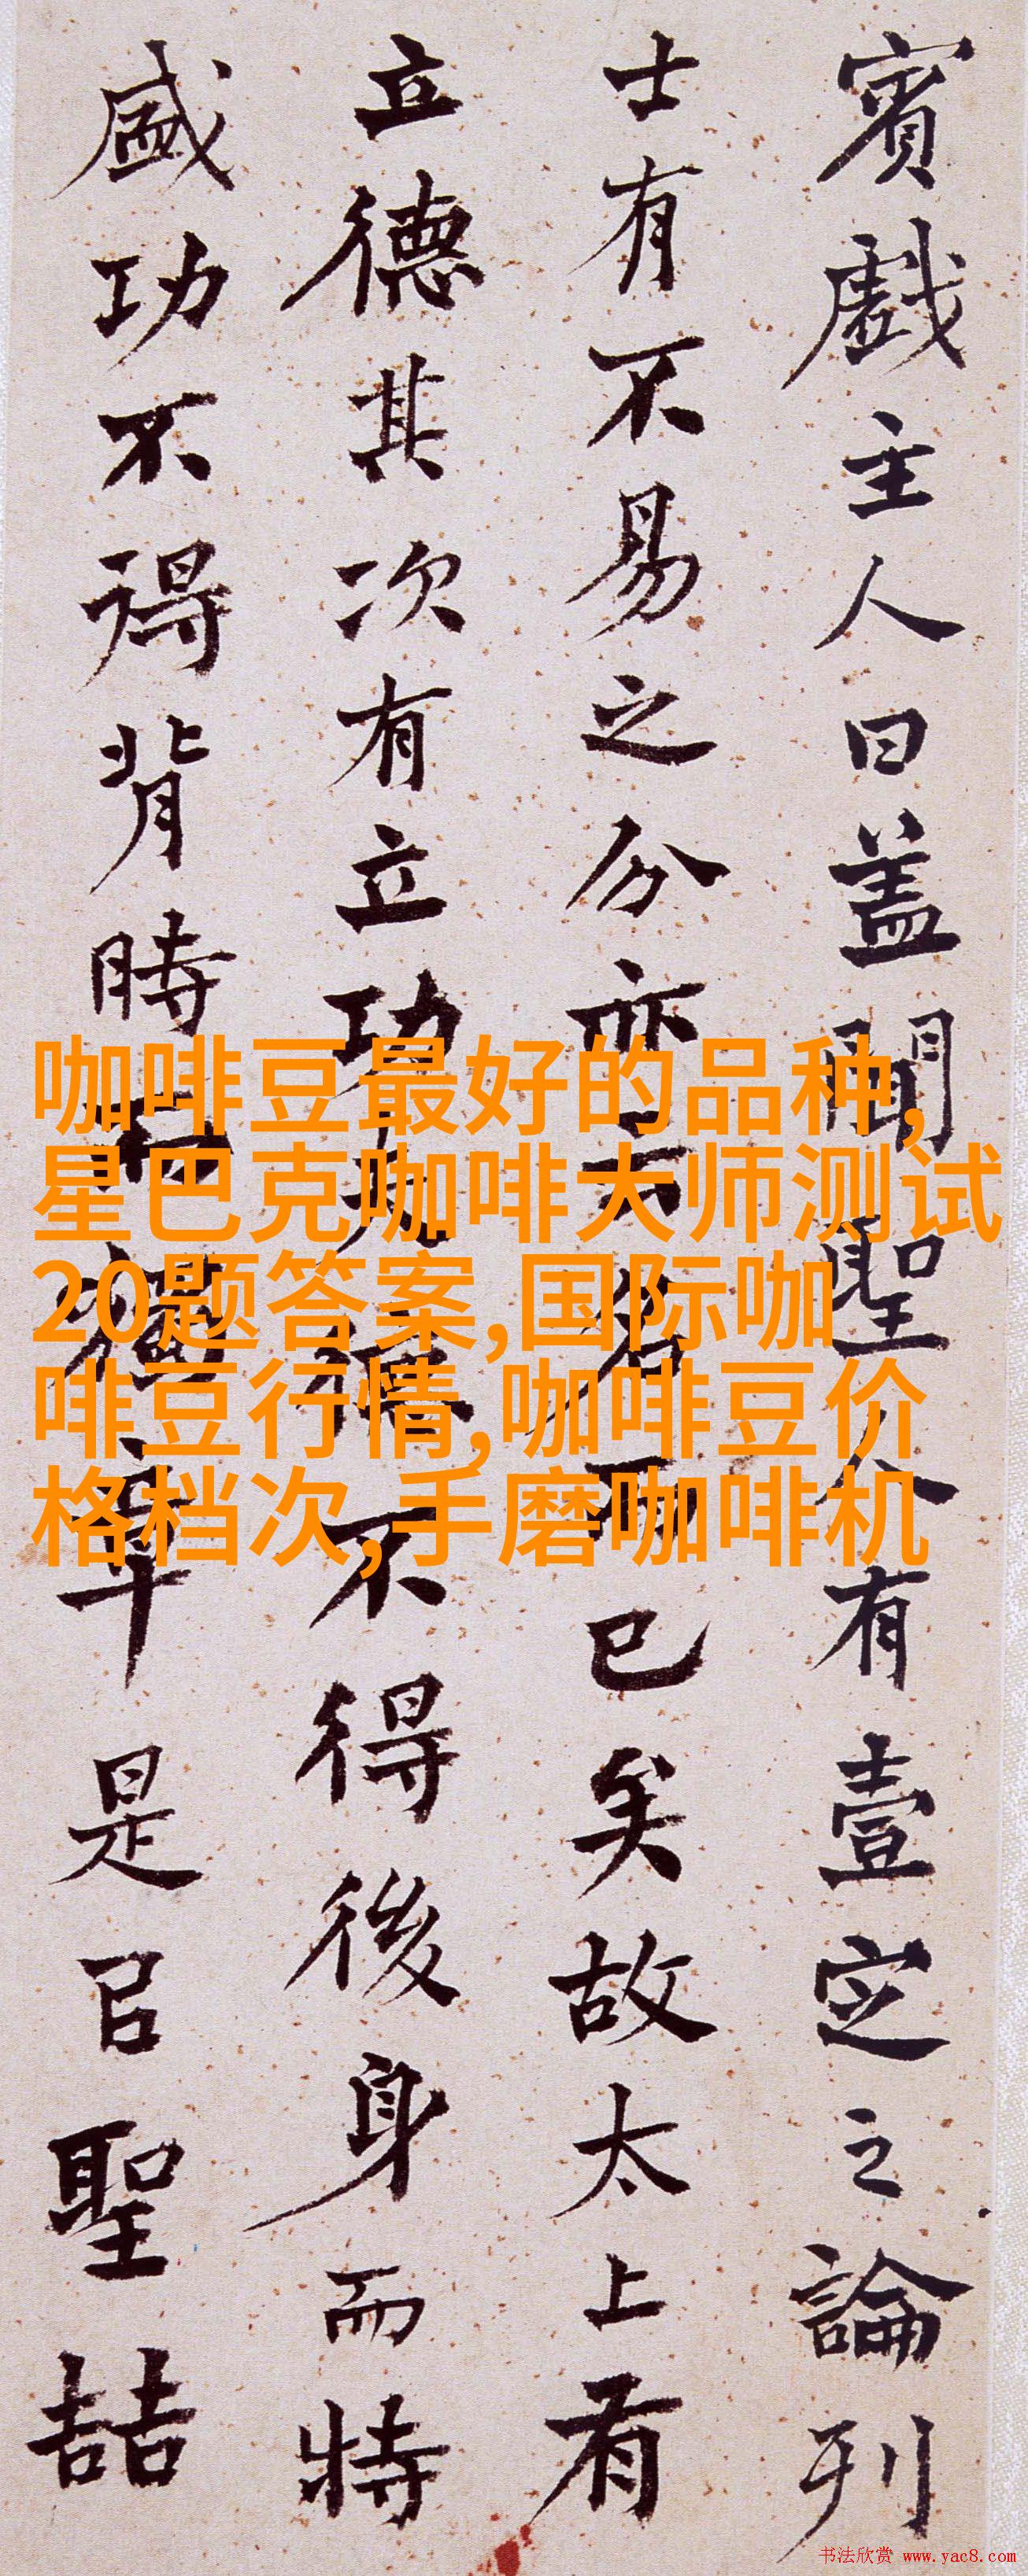 賓戲主人曰盖聞聖人有壹定之論列
士有不易之分亦云名而已矣故太上有
立德其次有立功夫德不得後身而特
盛功不得背時而獨章是㠯聖喆
咖啡豆最好的品种,
星巴克咖啡大师测试
20题答案,国际咖
啡豆行情,咖啡豆价
格档次,手磨咖啡机
书法欣赏 www.yac8.com